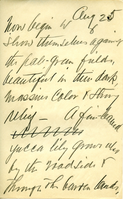 Aug 25
Now begin to
show themselves against
the pale green fields,
beautiful in their dark
massive color & strong
relief — A fine
yucca lily grows
by the roadside &
through the barren lands,